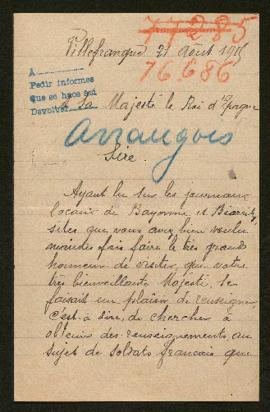 77285
Villefranque 21 Août 1915
76686
A
Pedir informes
que se hace qui
Devolver
A Sa Majesté le Roi d'Espagne
Arrangois
Sire.
Ayant lu sur les journaux
locaux de Bayonne et Biarritz,
villes que vous avez bien voulu
maintes fois faire le très grand
honneur de visiter, que votre
très bienveillante Majesté, se
faisait un plaisir de renseigner,
c'est à dire, de chercher à
obtenir des renseignements au
sujet de soldats français que